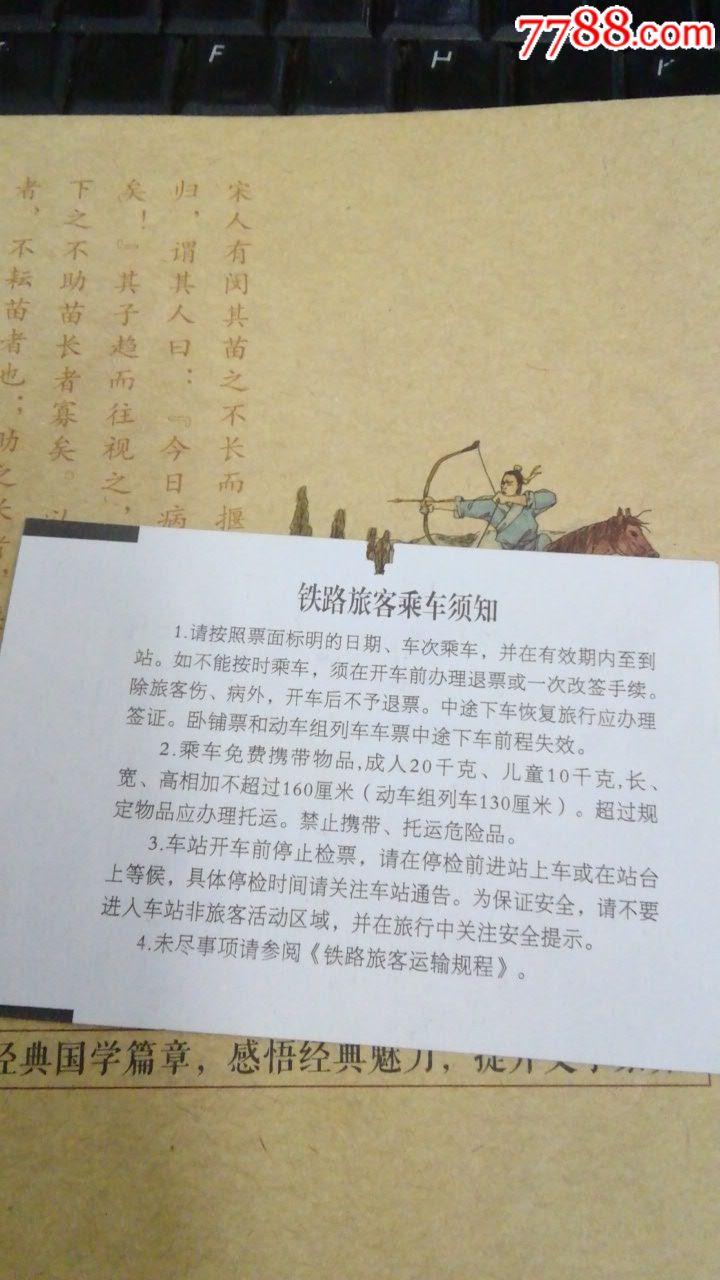 7788.com
F
H
宋人有闵其苗之不长而揠
归，谓其人曰：『今日病
矣！』其子趋而往视之，
下之不助苗长者寡矣。以
者，不耘苗者也；助之长者，
铁路旅客乘车须知
1.请按照票面标明的日期、车次乘车，并在有效期内至到
站。如不能按时乘车，须在开车前办理退票或一次改签手续。
除旅客伤、病外，开车后不予退票。中途下车恢复旅行应办理
签证。卧铺票和动车组列车车票中途下车前程失效。
2.乘车免费携带物品,成人20千克、儿童10千克,长、
宽、高相加不超过160厘米（动车组列车130厘米）。超过规
定物品应办理托运。禁止携带、托运危险品。
3.车站开车前停止检票，请在停检前进站上车或在站台
上等候，具体停检时间请关注车站通告。为保证安全，请不要
进入车站非旅客活动区域，并在旅行中关注安全提示。
4.未尽事项请参阅《铁路旅客运输规程》。
经典国学篇章，感悟经典魅力，提升文学